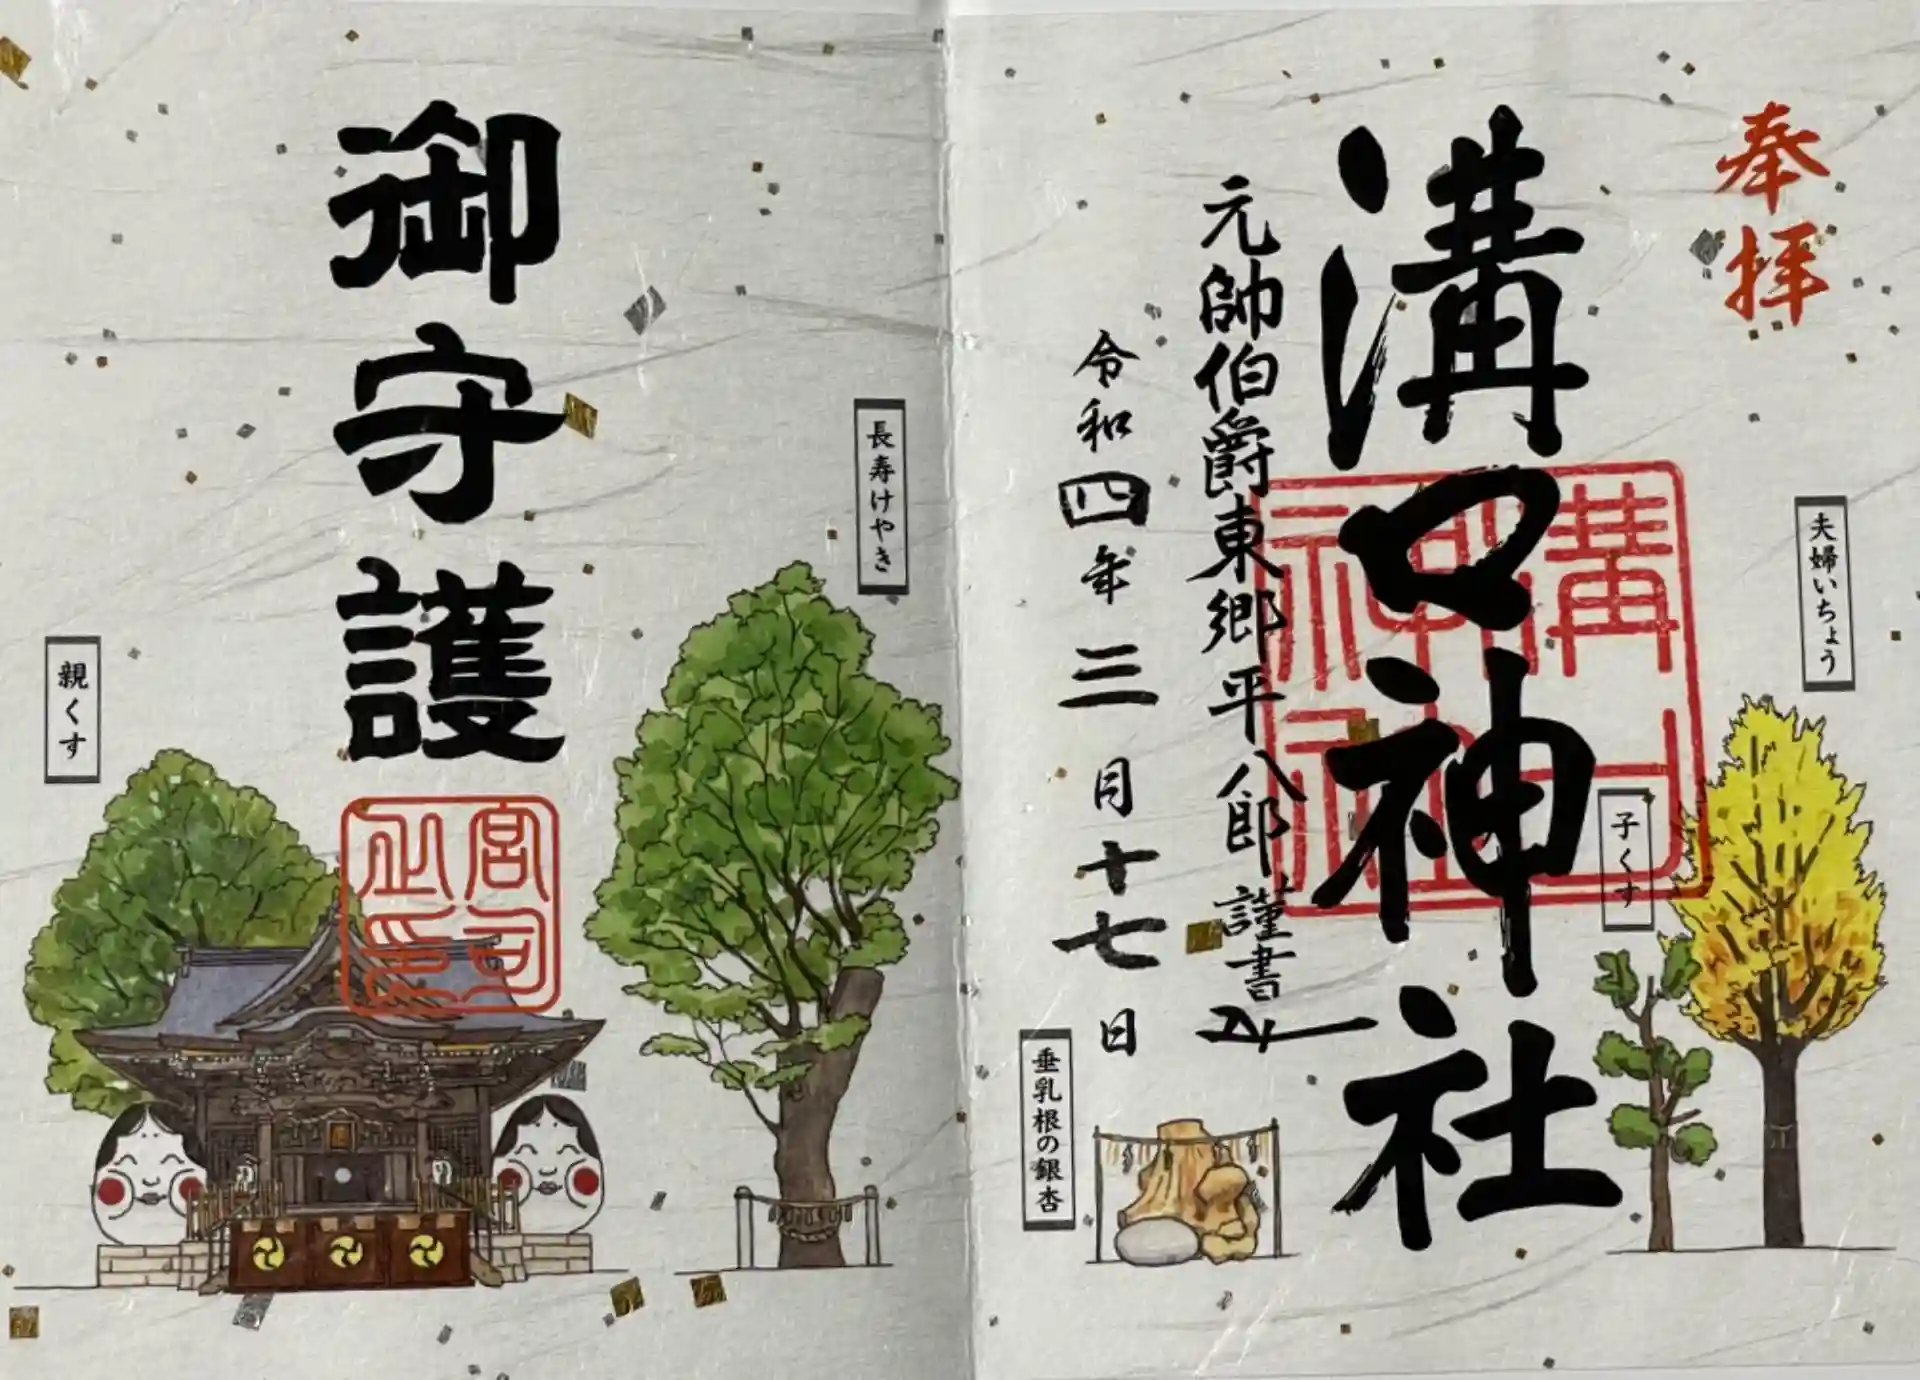 奉拝
夫婦いちょう
子くす
溝口神社
溝口神社
元帥伯爵東郷平八郎謹書
令和四年三月十七日
垂乳根の銀杏
長寿けやき
御守護
宮司之印
親くす